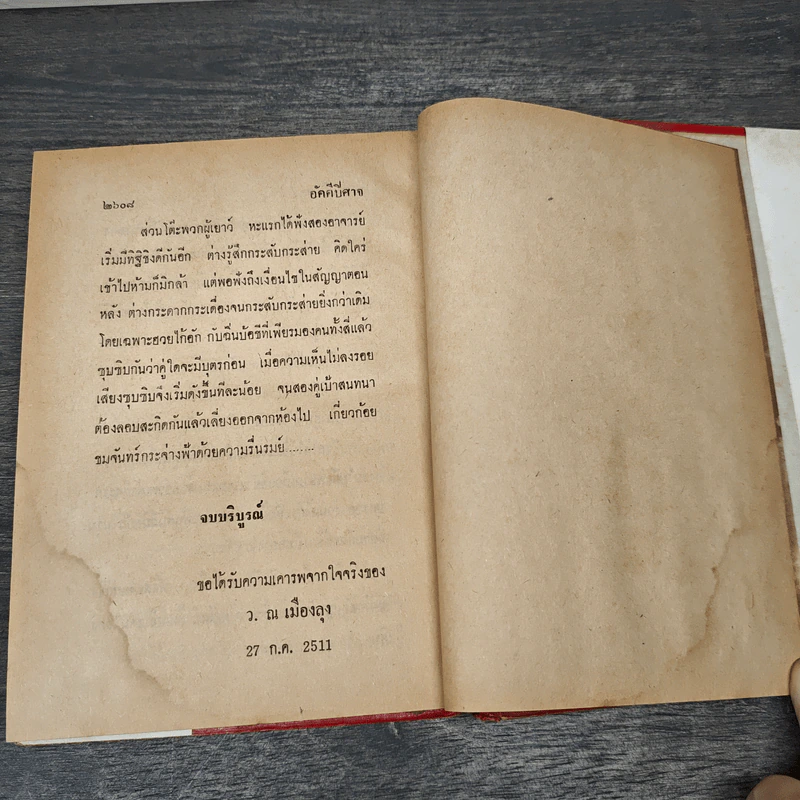 ๒๖๐๘ อัคคีปีศาจ
ส่วนโต๊ะพวกผู้เยาว์ หะแรกได้ฟังสองอาจารย์
เริ่มมีทิฐิชิงดีกันอีก ต่างรู้สึกกระสับกระส่าย คิดใคร่
เข้าไปห้ามก็มิกล้า แต่พอฟังถึงเงื่อนไขในสัญญาตอน
หลัง ต่างกระดากกระเดื่องจนกระสับกระส่ายยิ่งกว่าเดิม
โดยเฉพาะฮวยไก๊อัก กับฉิ่นบ้อซีที่เพียรมองคนทั้งสี่แล้ว
ซุบซิบกันว่าคู่ใดจะมีบุตรก่อน เมื่อความเห็นไม่ลงรอย
เสียงซุบซิบจึงเริ่มดังขึ้นทีละน้อย จนสองคู่เป้าสนทนา
ต้องลอบสะกิดกันแล้วเลี่ยงออกจากห้องไป เกี่ยวก้อย
ชมจันทร์กระจ่างฟ้าด้วยความรื่นรมย์.......
จบบริบูรณ์
ขอได้รับความเคารพจากใจจริงของ
ว. ณ เมืองลุง
27 ก.ค. 2511